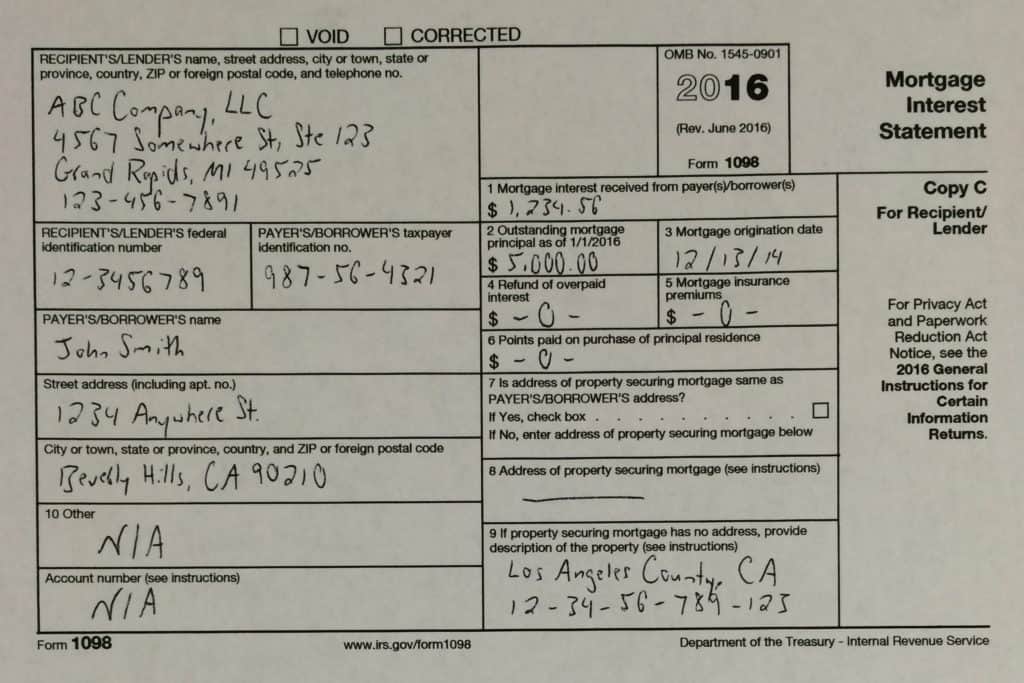 VOID CORRECTED
RECIPIENT'S/LENDER'S name, street address, city or town, state or
province, country, ZIP or foreign postal code, and telephone no.
ABC Company, LLC
4567 Somewhere St, Ste 123
Grand Rapids, MI 49525
123-456-7891
OMB No. 1545-0901
2016
(Rev. June 2016)
Form 1098
Mortgage
Interest
Statement
1 Mortgage interest received from payer(s)/borrower(s)
$ 1,234.56
Copy C
For Recipient/
Lender
RECIPIENT'S/LENDER'S federal
identification number
12-3456789
PAYER'S/BORROWER'S taxpayer
identification no.
987-56-4321
2 Outstanding mortgage
principal as of 1/1/2016
$ 5,000.00
3 Mortgage origination date
12/13/14
4 Refund of overpaid
interest
$ -0-
5 Mortgage insurance
premiums
$ -0-
For Privacy Act
and Paperwork
Reduction Act
Notice, see the
2016 General
Instructions for
Certain
Information
Returns.
PAYER'S/BORROWER'S name
John Smith
6 Points paid on purchase of principal residence
$ -0-
Street address (including apt. no.)
1234 Anywhere St.
7 Is address of property securing mortgage same as
PAYER'S/BORROWER'S address?
If Yes, check box . . . . . . . . . .
If No, enter address of property securing mortgage below
City or town, state or province, country, and ZIP or foreign postal code
Beverly Hills, CA 90210
8 Address of property securing mortgage (see instructions)
10 Other
N/A
9 If property securing mortgage has no address, provide
description of the property (see instructions)
Los Angeles County, CA
12-34-56-789-123
Account number (see instructions)
N/A
Form 1098 www.irs.gov/form1098 Department of the Treasury - Internal Revenue Service